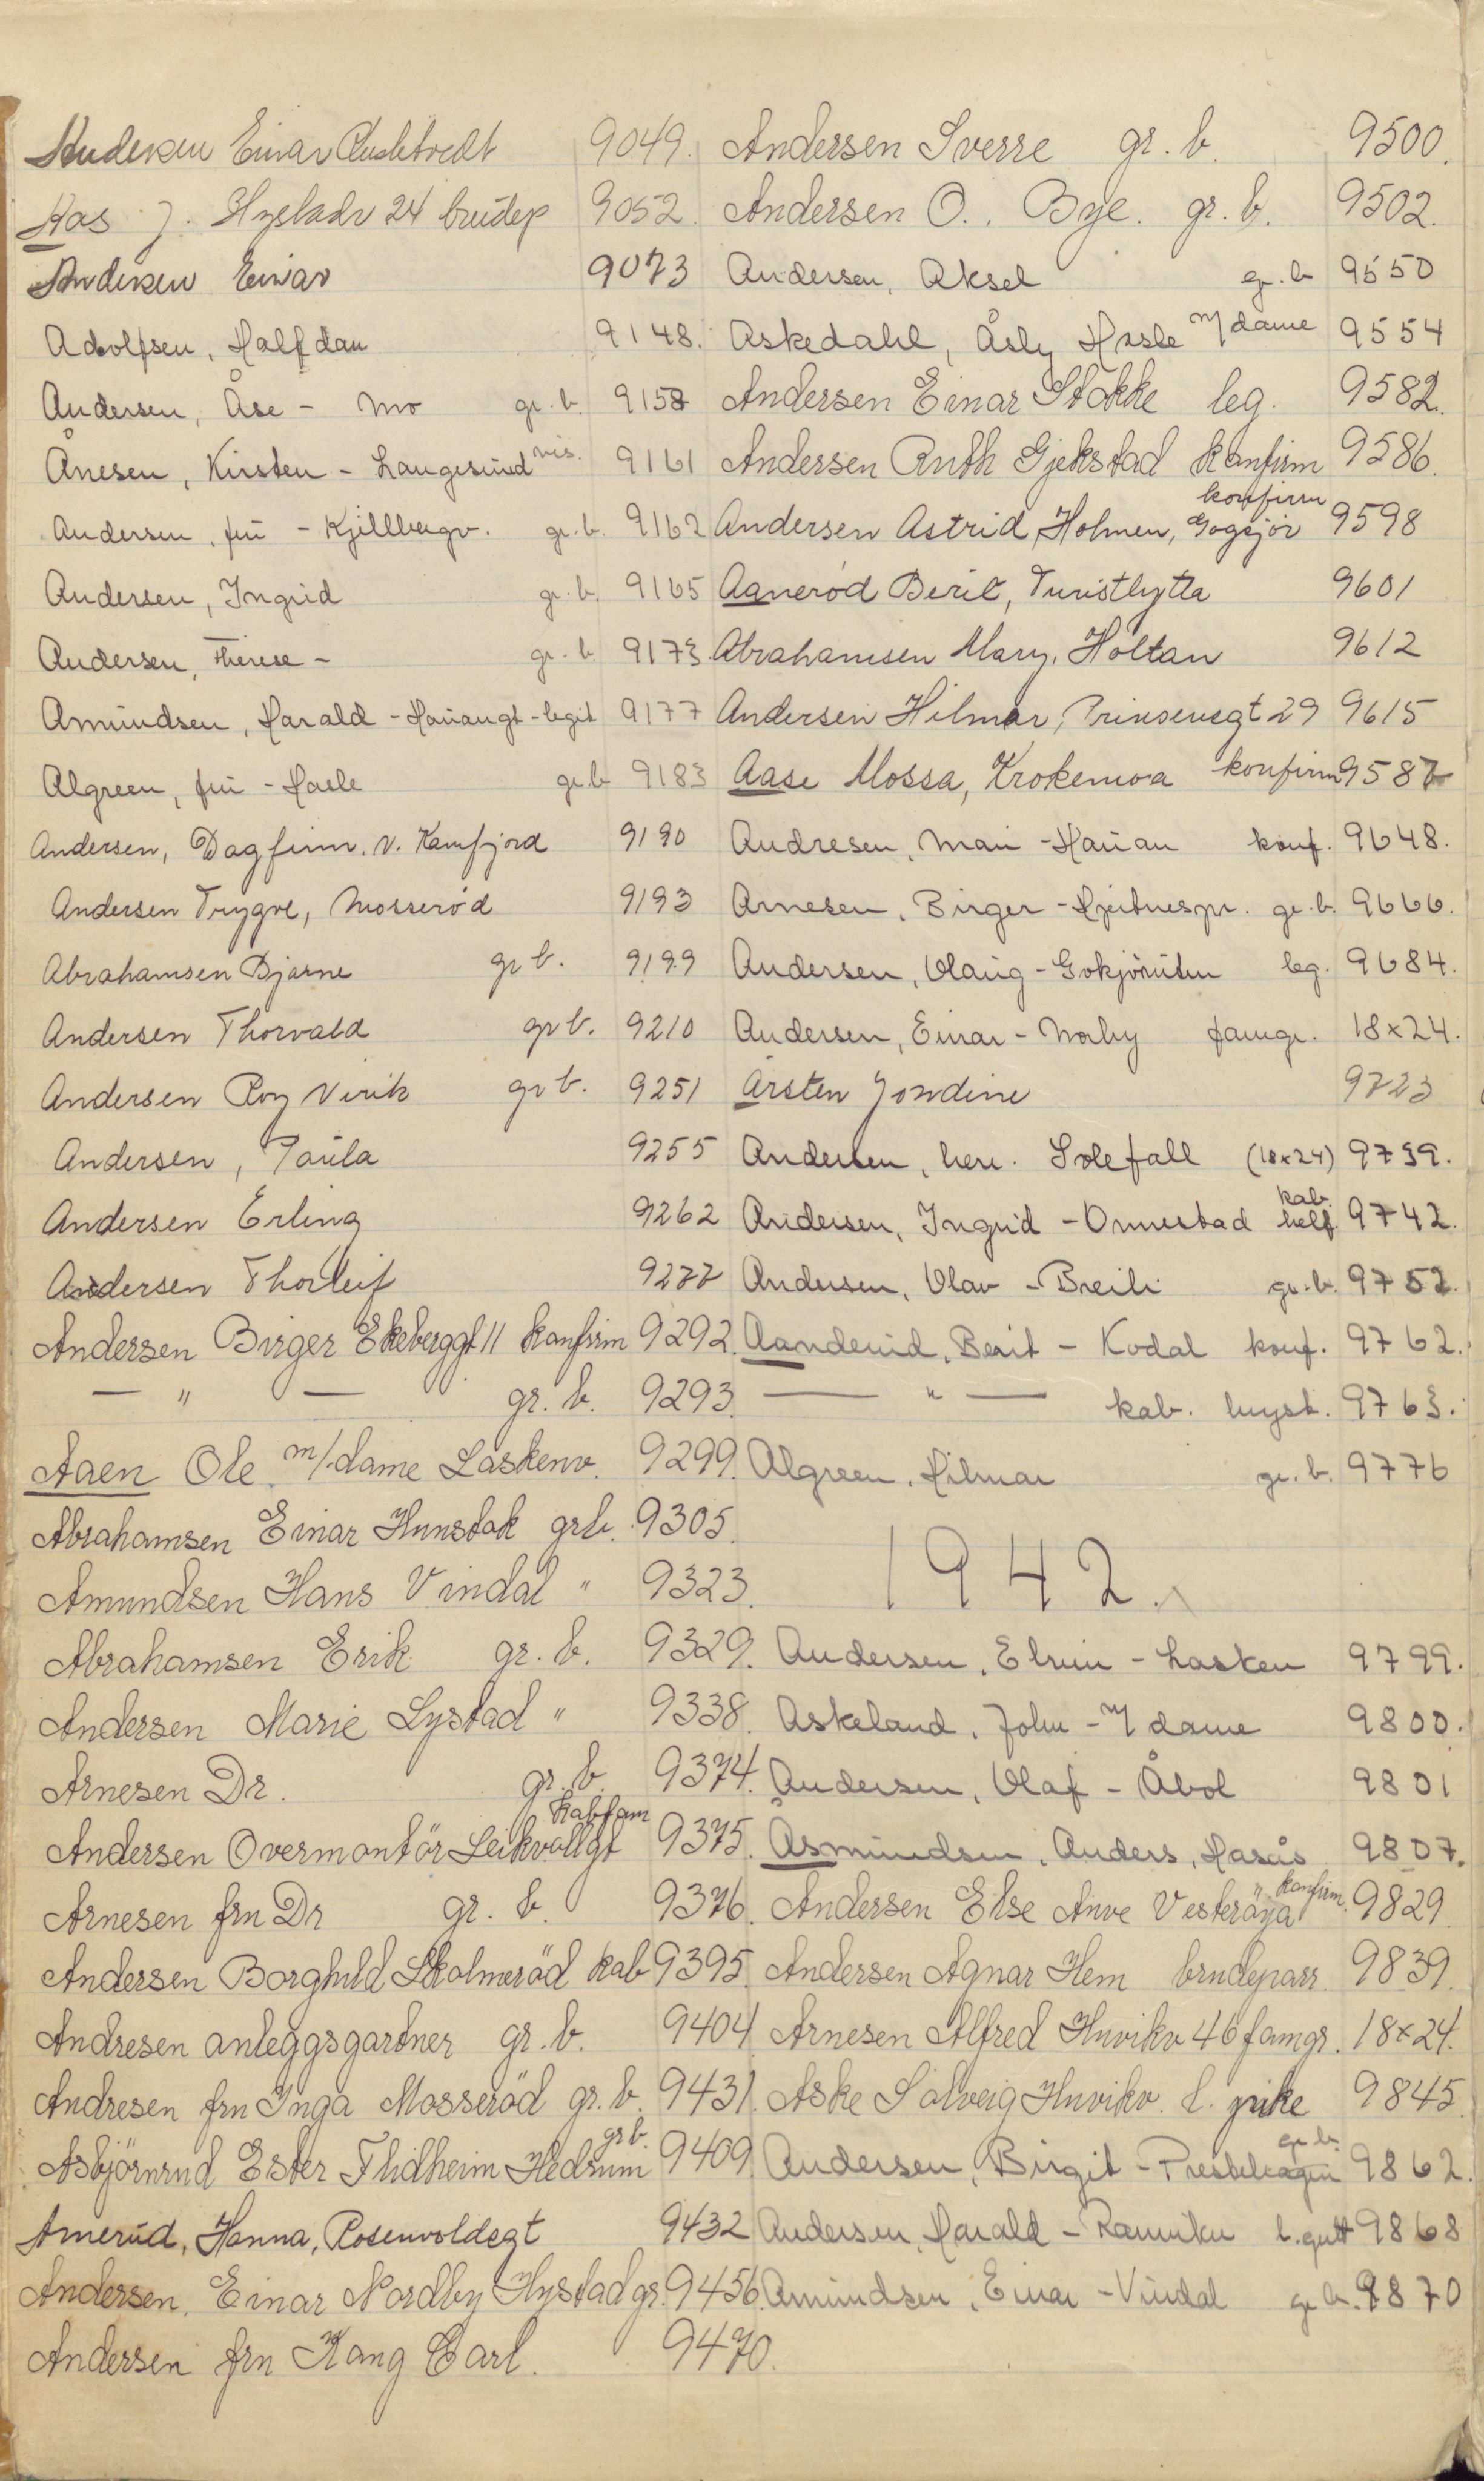 Andersen Einar
9049.
Aas J. Hystadv 24 brudep
9052.
Andersen Einar
9073
Adolfsen, Halfdan
9148.
Andersen, Åse - Mo gr. b.
9158
Ånesen, Kirsten - Langesund vis.
9161
Andersen, fru - Kjellbergv. gr. b.
9162
Andersen, Ingrid gr. b.
9165
Andersen, Therese - gr. b
9173
Amundsen, Harald - Hauangt - legit
9177
Algreen, fru - Hasle gr. b
9183
Andersen, Dagfinn. v. Kamfjord
9190
Andersen Trygve, Mosserød
9193
Abrahamsen Bjarne gr b.
9199
Andersen Thorvald gr b.
9210
Andersen Roy Virik gr b.
9251
Andersen, Paula
9255
Andersen Erling
9262
Andersen Thorleif
9277
Andersen Birger Ekeberggt 11 konfirm
9292.
— " — gr. b.
9293.
Aaen Ole m/dame Laskenv.
9299.
Abrahamsen Einar Hunstok gr b.
9305.
Amundsen Hans Vindal "
9323.
Abrahamsen Erik gr. b.
9329.
Andersen Marie Lystad "
9338.
Arnesen Dr. gr. b.
9374.
Andersen Overmontör Leikvollgt kabfam
9375.
Arnesen fru Dr gr. b.
9376.
Andersen Borghild Skolmeröd kab
9395.
Andresen anleggsgartner gr. b.
9404
Andresen fru Inga Mosseröd gr. b.
9431.
Asbjörnrud Ester Flidheim Hedrum gr b.
9409
Amerud, Hanna, Rosenvoldsgt
9432
Andersen, Einar Nordby Hystad gr.
9456.
Andersen fru Kang Carl.
9470.
Andersen Sverre gr. b.
9500.
Andersen O. Bye. gr. b.
9502.
Andersen, Aksel gr. b
9550
Askedahl, Åsly Hasle m/dame
9554
Andersen Einar Stokke leg.
9582.
Andersen Ruth Gjekstad konfirm
9586.
Andersen Astrid, Holmen, Gogsjør konfirm
9598
Aanerød Berit, Turisthytta
9601
Abrahamsen Mary, Holtan
9612
Andersen Hilmar, Prinsensgt 29
9615
Aase Mossa, Krokemoa konfirm
9587
Andresen, Mai - Hauan konf.
9648.
Arnesen, Birger - Hjertnespr. gr. b.
9666.
Andersen, Olaug - Gokjøruten leg.
9684.
Andersen, Einar - Norby famgr.
18×24.
Årsten Jondine
9723
Andersen, herr. Solefall (18×24)
9739.
Andersen, Ingrid - Ormestad kab. helf.
9742.
Andersen, Olav - Breili gr. b.
9752.
Aanderud, Berit - Kodal konf.
9762.
— " — kab. bryst.
9763.
Algreen, Hilmar gr. b.
9776
1942.
Andersen, Elvin - Lasken
9799.
Askeland, John - m/ dame
9800.
Andersen, Olaf - Åbol
9801
Åsmundsen, Anders, Hasås
9807.
Andersen Else Anve Vesteröya konfirm.
9829
Andersen Agnar Hem brudeparr.
9839.
Arnesen Alfred Huvikv 46 famgr.
18×24.
Aske Solveig Huvikv. l. pike
9845
Andersen, Birgit - Prestehagen gr. b.
9862.
Andersen, Harald - Ranviken l. gutt
9868
Amundsen, Einar - Vindal gr. b.
9870